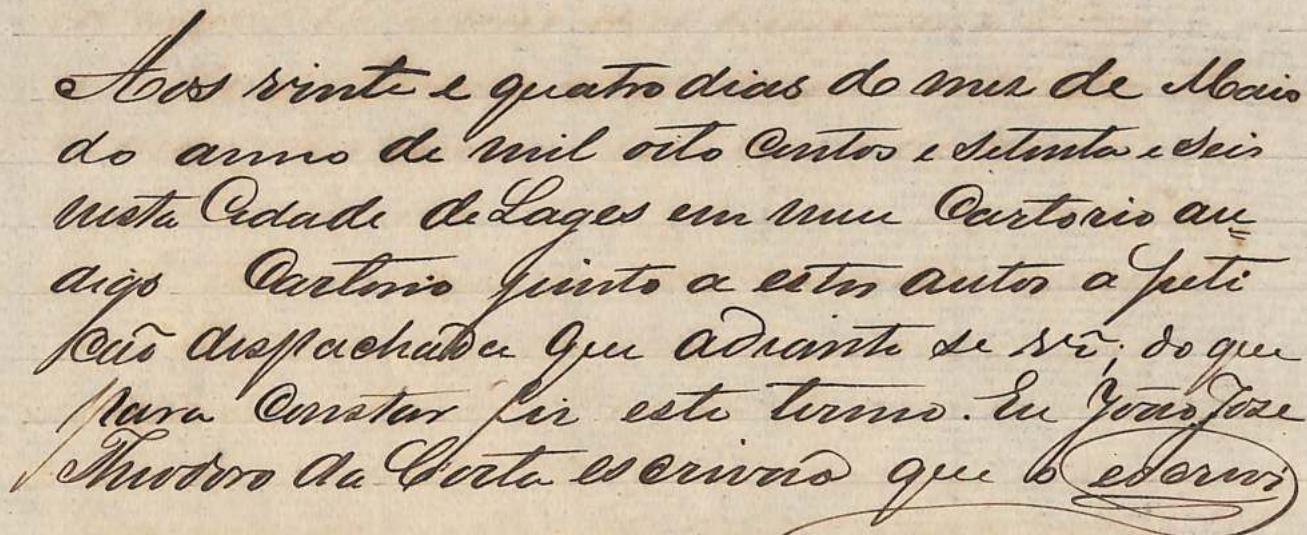 Aos vinte e quatro dias do mez de Maio
do anno de mil oito centos e setenta e seis
nesta Cidade de Lages em meu Cartorio au=
digo Cartorio junto a estes autos a peti
cão despachada que adiante se vê; do que
para constar fiz este termo. Eu João José
Theodoro da Costa escrivão que o escrevi